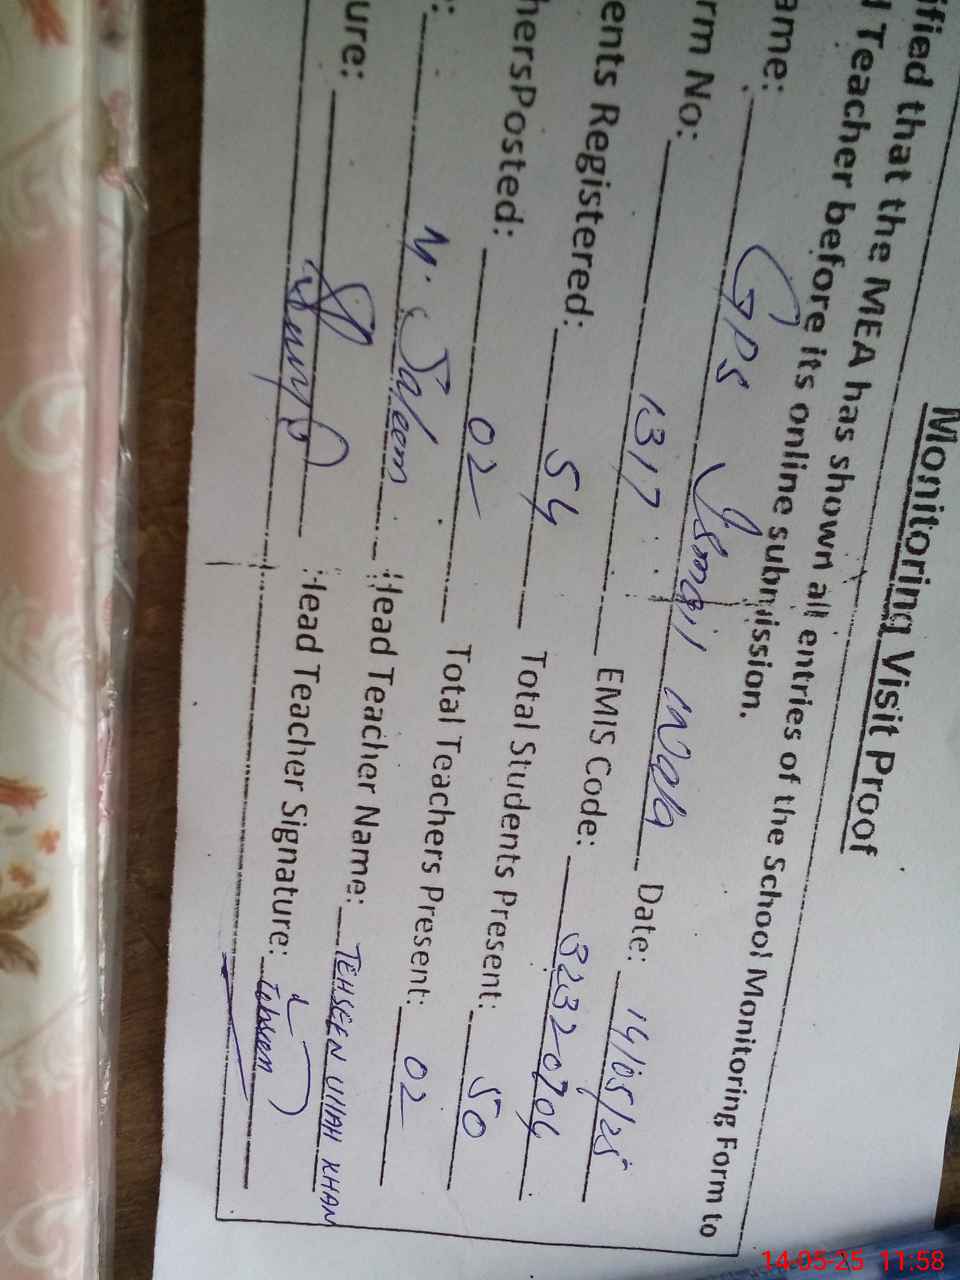 Monitoring Visit Proof
ified that the MEA has shown all entries of the School Monitoring Form to
Teacher before its online submission.
ame: GPS Ismail Wala Date: 14/05/25
rm No: 1317 EMIS Code: 32320704
ents Registered: 54 Total Students Present: 50
hersPosted: 02 Total Teachers Present: 02
: M. Saleem Head Teacher Name: TEHSEEN ULLAH KHAN
ure: Head Teacher Signature: Tehseen
14-05-25 11:58